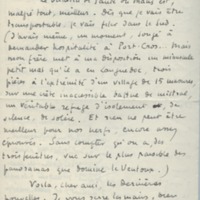 malgré tout, meilleur. Dès que je vais être
transportable, je vais filer dans le sud
(J'avais même, un moment, songé à
demander hospitalité à Port-Cros. Mais
mon frère met à ma disposition un minuscule
petit mas qu'il a en Languedoc trois
pièces à l'extrémité d'un village de 15 maisons
sur une côte inaccessible battue de mistral,
un véritable refuge d'isolement, de
silence, de soleil. Et rien ne peut être
meilleur pour nos nerfs, encore assez
éprouvés. Sans compter qu'on a, des
trois fenêtres, vue sur le plus
panoramas que domine le Ventoux.)
Voilà, cher ami, les dernières
nouvelles. Je vous serre les mains, bien